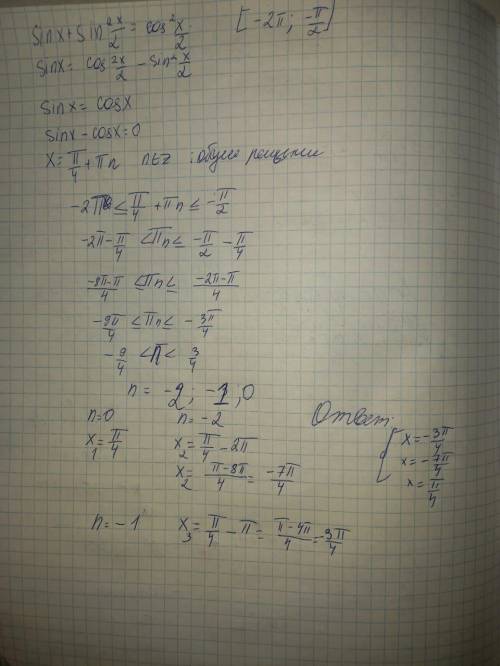 sinx + sin²x/2 = cos²x/2 [-2π; -π/2]
sinx = cos²x/2 - sin²x/2
sinx = cosx
sinx - cosx = 0
x = π/4 + πn n∈Z : общее решение
-2π ≤ π/4 + πn ≤ -π/2
-2π - π/4 < πn ≤ -π/2 - π/4
-8π-π/4 ≤ πn ≤ -2π-π/4
-9π/4 ≤ πn ≤ -3π/4
-9/4 < n < 3/4
n = -2; -1; 0
n=0 n=-2 Ответ:
x₁ = π/4 x₂ = π/4 - 2π x = -3π/4
x₂ = π-8π/4 = -7π/4 x = -7π/4
x = π/4
n = -1 x₃ = π/4 - π = π-4π/4 = -3π/4